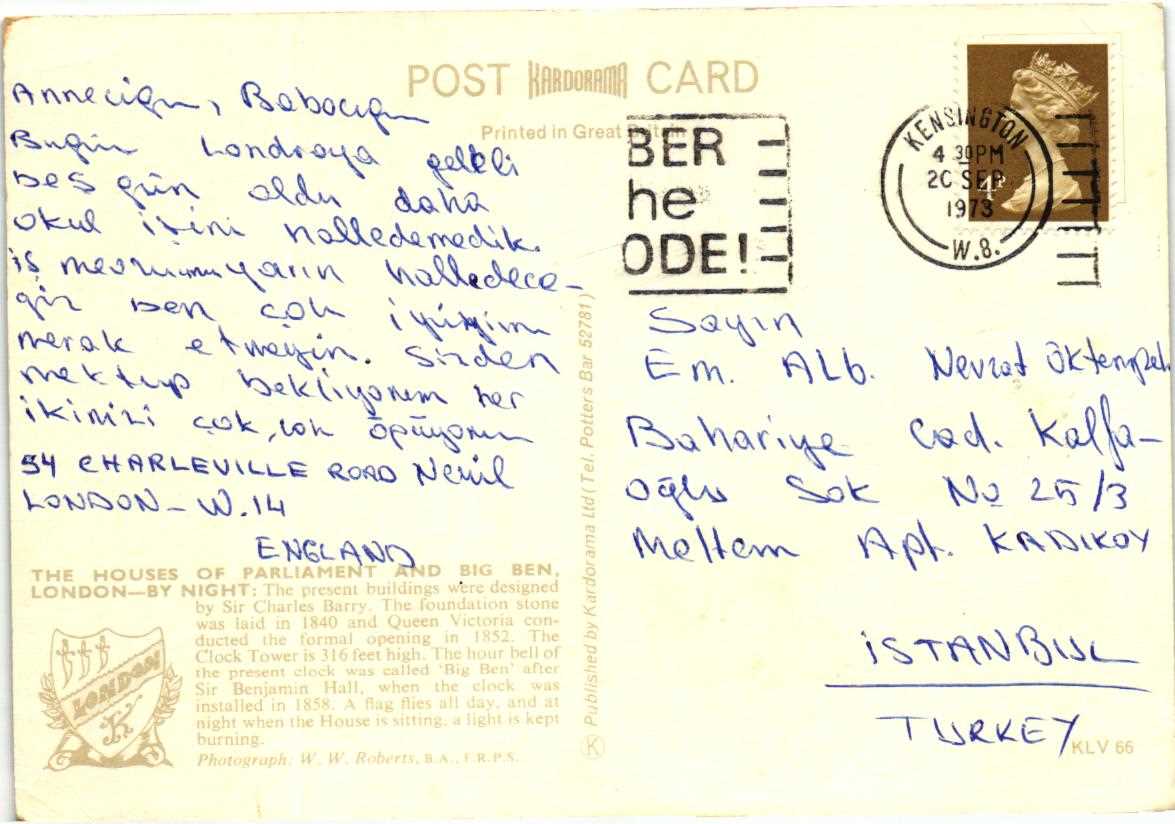 POST KARDORAMA CARD
Printed in Great Britain
Annecigm, Babacıgm
Bugün Londraya geleli
beş gün oldu daha
okul işini halledemedik.
iş mevzuunu yarın halledece-
giz ben çok iyiyim
merak etmeyin. Sizden
mektup bekliyorum her
ikinizi çok, çok öpüyorum
94 CHARLEVILLE ROAD
LONDON - W.14
ENGLAND
THE HOUSES OF PARLIAMENT AND BIG BEN,
LONDON—BY NIGHT: The present buildings were designed
by Sir Charles Barry. The foundation stone
was laid in 1840 and Queen Victoria con-
ducted the formal opening in 1852. The
Clock Tower is 316 feet high. The hour bell of
the present clock was called 'Big Ben' after
Sir Benjamin Hall, when the clock was
installed in 1858. A flag flies all day, and at
night when the House is sitting, a light is kept
burning.
Photograph: W. W. Roberts, B.A., F.R.P.S.
LONDON
K
Published by Kardorama Ltd (Tel. Potters Bar 52781)
K
BER
he
ODE!
KENSINGTON
4 30PM
20 SEP
1973
W.8.
4P
Sayın
Em. Alb. Nevzat
Bahariye Cad. Kalfa-
oğlu Sok No 25/3
Meltem Apt. KADIKOY
İSTANBUL
TURKEY
KLV 66